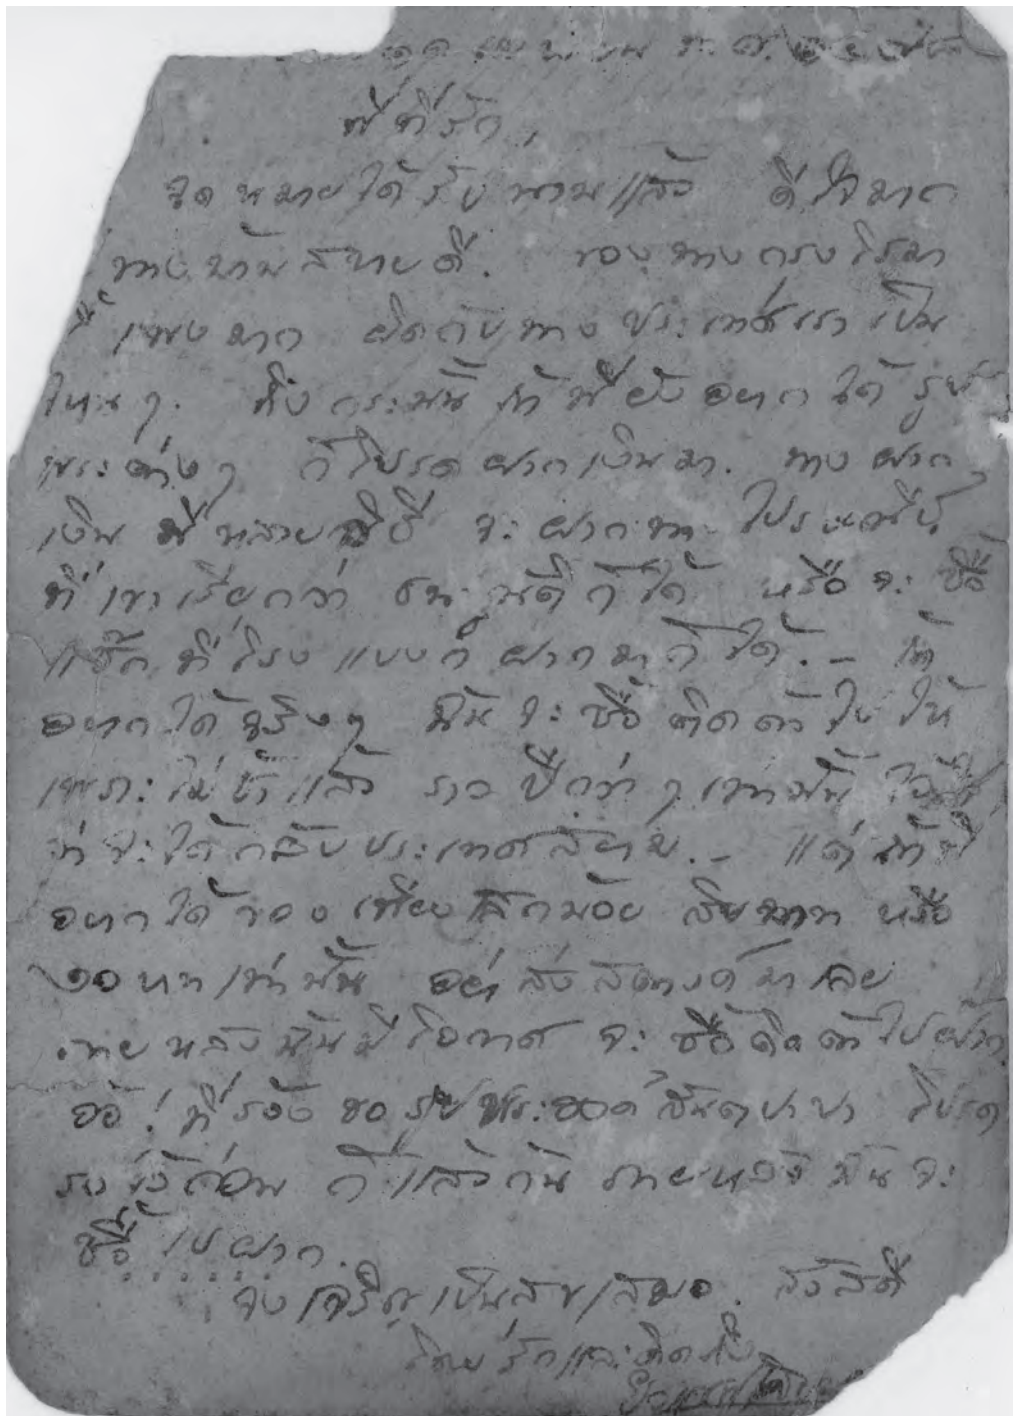 ๑๑ เมษายน ค.ศ.
พี่ที่รัก,
จดหมายได้รับนานแล้ว ดีใจมาก
ทางบ้านสบายดี. ของทางกรุงโรมา
นี้ แพงมาก ผิดกับทางประเทศเราเป็น
ไหนๆ. ถึงกระนั้น ถ้าพี่ยังอยากได้ รูป
พระต่างๆ ก็โปรดฝากเงินมา. ทางฝาก
เงิน มีหลายวิธี จะฝากทางไปรษณีย์
ที่เขาเรียกว่า ธนาณัติก็ได้ หรือจะซื้อ
แช็ก ที่โรงแบงก์ ฝากมาก็ได้. – ถ้า
อยากได้จริงๆ ฉันจะซื้อติดตัวไปให้
เพราะไม่ช้าแล้ว ราวปีกว่าๆ เท่านั้น
ก็จะได้กลับประเทศสยาม. – แต่ถ้าพี่
อยากได้ของเพียงเล็กน้อย สิบบาท หรือ
๒๐ บาทเท่านั้น อย่าส่งสตางค์มาเลย
ภายหลังฉันมีโอกาส จะซื้อติดตัวไปฝาก.
อ้อ! ที่ร้องขอรูปพระของสันตปาปา โปรด
รอไว้ก่อน ก็แล้วกัน ภายหลังฉันจะ
ซื้อไปฝาก.
จงเจริญเป็นสุขเสมอ. สวัสดี
โดยรักและคิดถึง